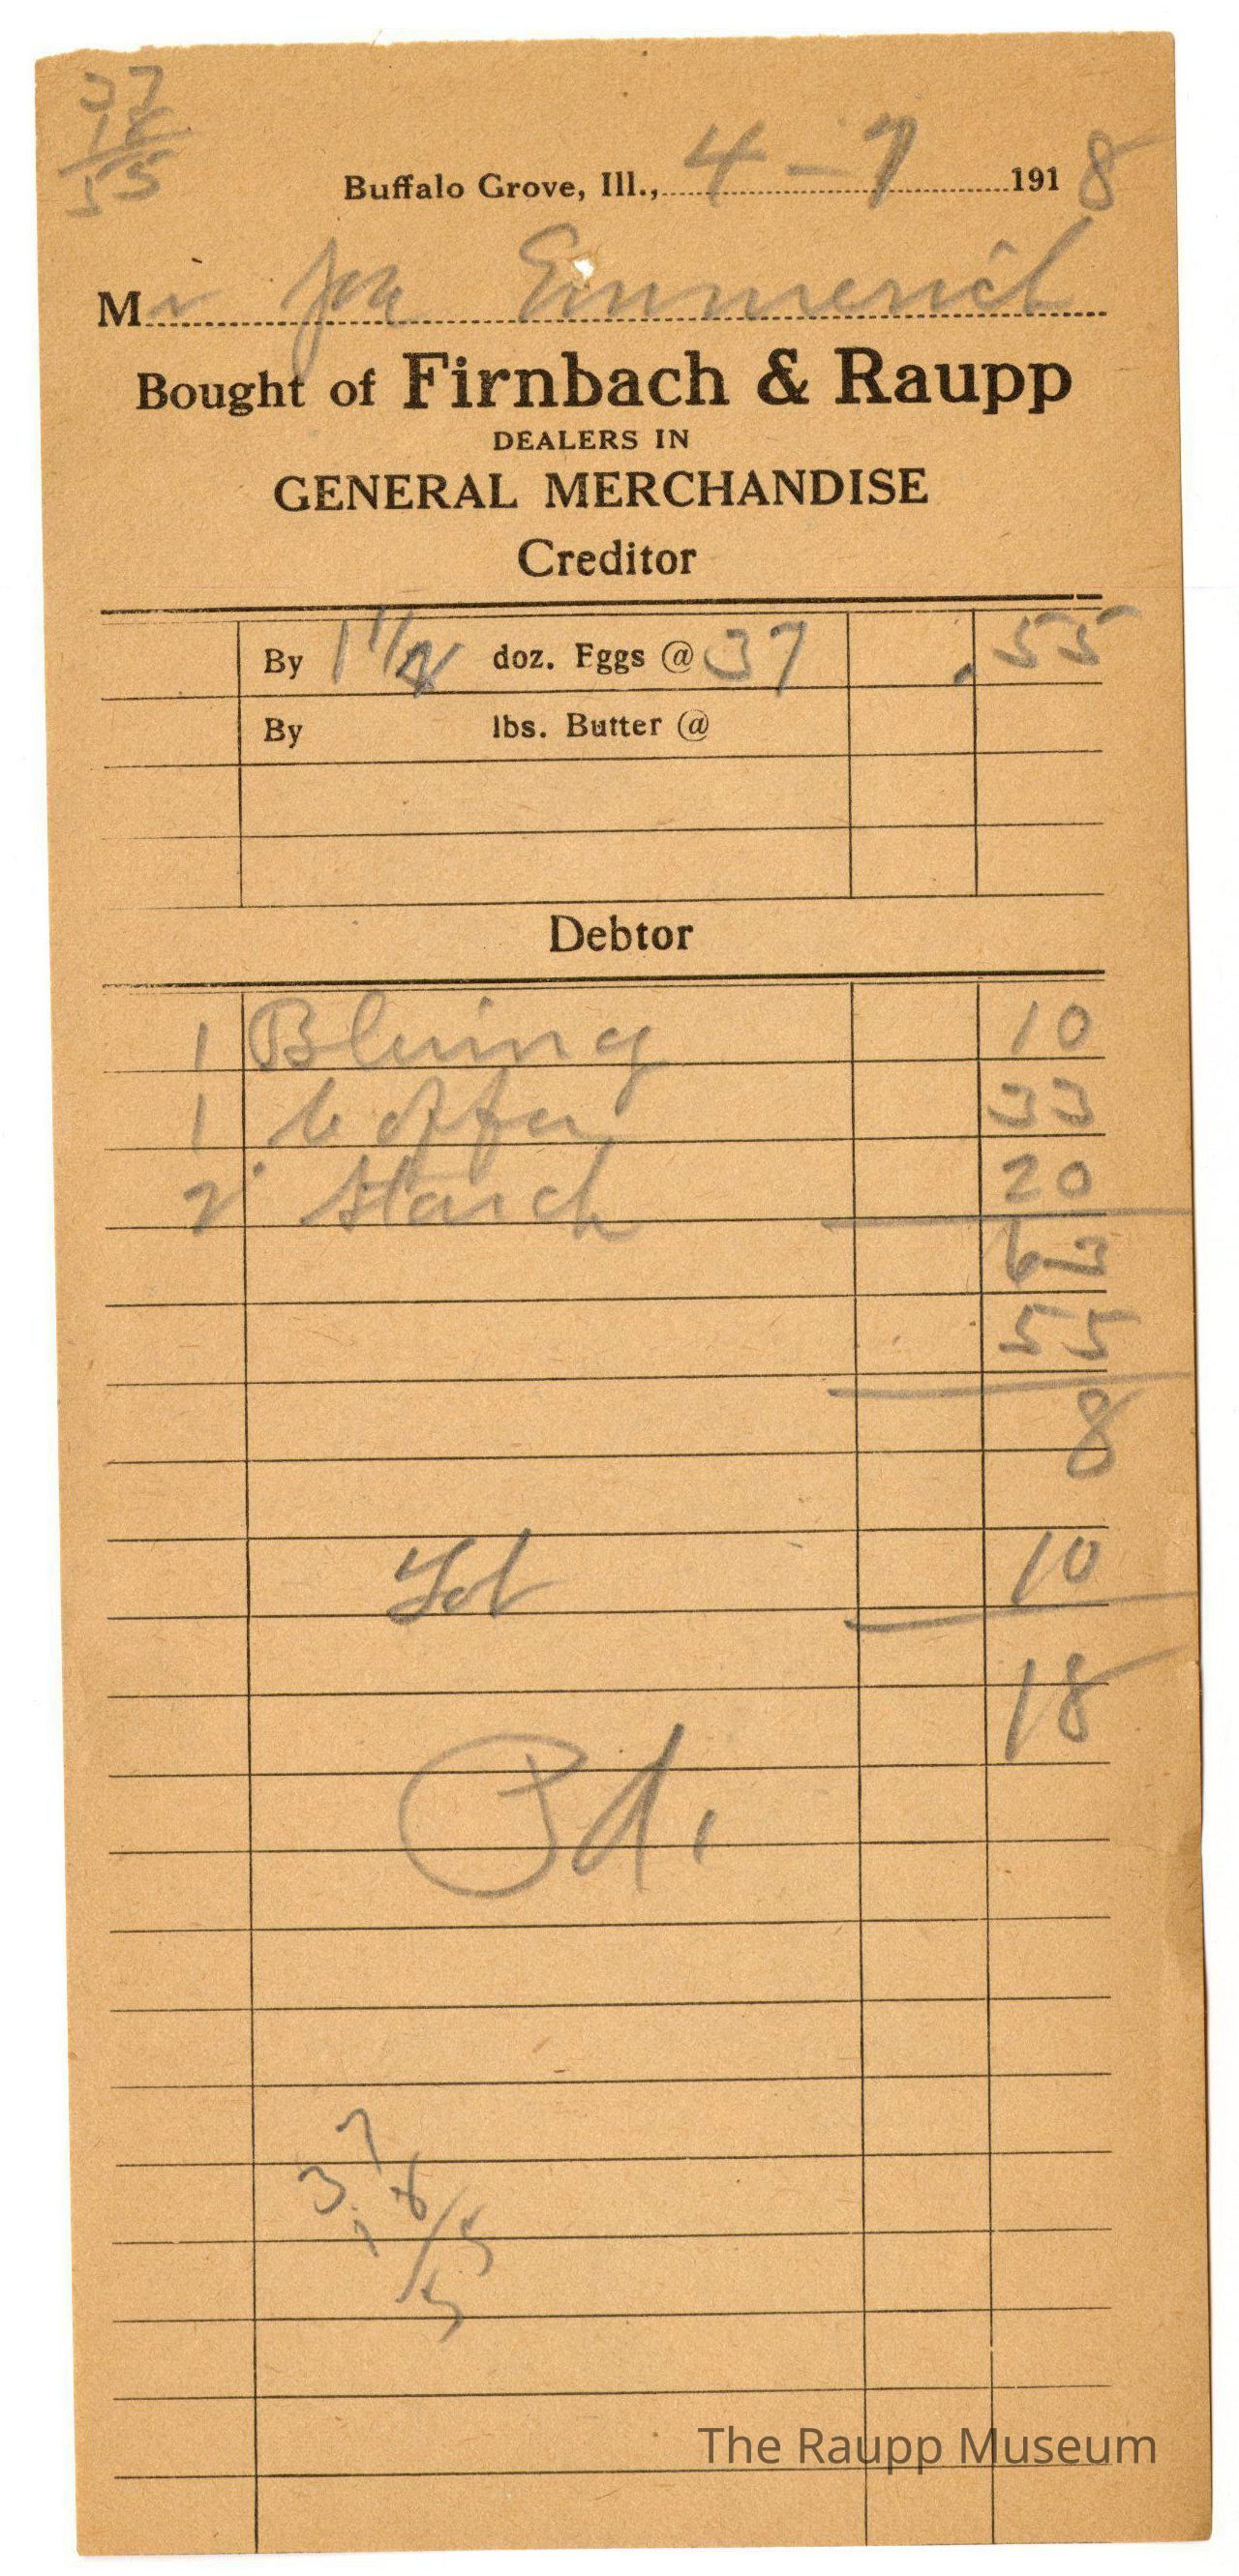 37
18
55
Buffalo Grove, Ill., 4 - 7 1918
Mr Joe Emmerich
Bought of Firnbach & Raupp
DEALERS IN
GENERAL MERCHANDISE
Creditor
By 1 1/2 doz. Eggs @ 37 .55
By lbs. Butter @
Debtor
1 Bluing 10
1 Coffee 33
2 Starch 20
63
55
8
10
18
Pd.
The Raupp Museum